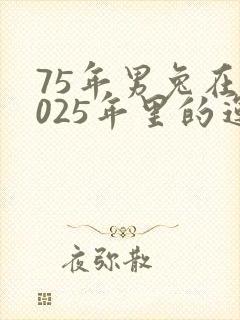 75年男兔在
025年里的运
夜弥散